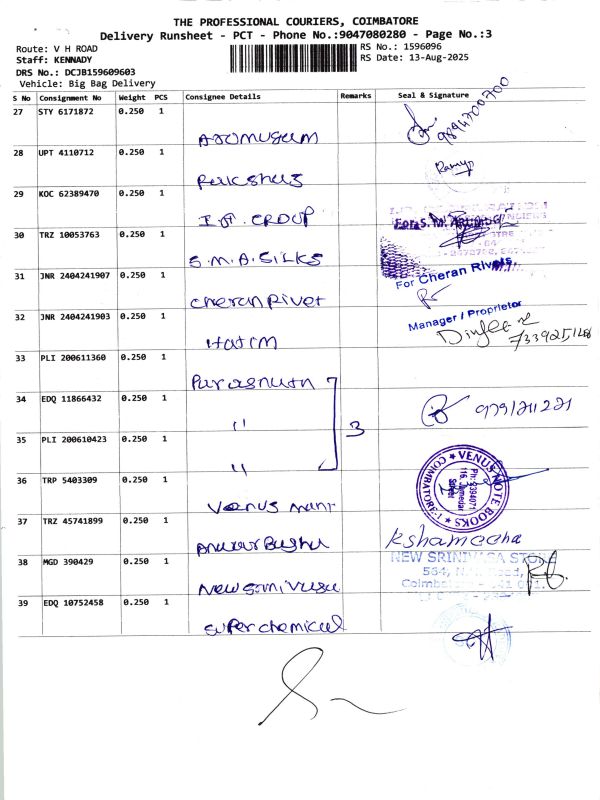 THE PROFESSIONAL COURIERS, COIMBATORE
Delivery Runsheet - PCT - Phone No.:9047080280 - Page No.:3
Route: V H ROAD
RS No.: 1596096
Staff: KENNADY
RS Date: 13-Aug-2025
DRS No.: DCJB159609603
Vehicle: Big Bag Delivery
S No Consignment No Weight PCS Consignee Details Remarks Seal & Signature
27 STY 6171872 0.250 1
9894700700
28 UPT 4110712 0.250 1
Ramya
29 KOC 62389470 0.250 1
I.J. GROUP
For S. M. A.
30 TRZ 10053763 0.250 1
S.M.A. SILKS
31 JNR 2404241907 0.250 1
For Cheran Rivets
Cheran Rivet
32 JNR 2404241903 0.250 1
Manager / Proprietor
Hatim
33 PLI 200611360 0.250 1
34 EDQ 11866432 0.250 1
"
3
35 PLI 200610423 0.250 1
"
VENUS NOTE BOOKS
COIMBATORE-1
36 TRP 5403309 0.250 1
Venus Mant
37 TRZ 45741899 0.250 1
Kshameeha
38 MGD 390429 0.250 1
NEW SRINIVASA STORE
564,
New Srinivasa
39 EDQ 10752458 0.250 1
Super chemical